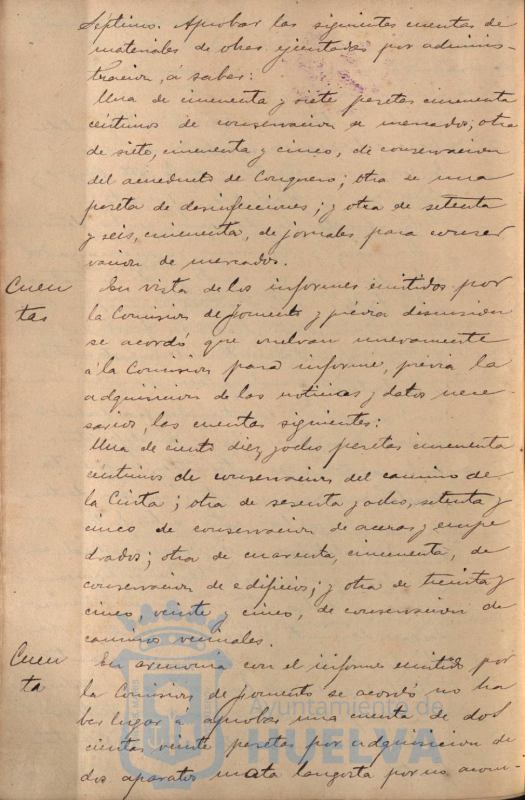 Septimo. Aprobar las siguientes cuentas de
materiales de obras ejecutadas por adminis-
tracion, á saber:
Una de cincuenta y siete pesetas cincuenta
céntimos de conservacion de mercados; otra
de siete, cincuenta y cinco, de conservacion
del acueducto de Conquero; otra de una
peseta de desinfecciones; y otra de setenta
y seis, cincuenta, de jornales para conser
vacion de mercados.
Cuen
tas
En vista de los informes emitidos por
la Comision de fomento y prévia discusion
se acordó que vuelvan nuevamente
á la Comision para informe, prévia la
adquisicion de las noticias y datos nece-
sarios, las cuentas siguientes:
Una de ciento diez y ocho pesetas cincuenta
céntimos de conservacion del camino de
la Cinta; otra de sesenta y ocho, setenta y
cinco de conservacion de aceras y empe
drados; otra de cuarenta, cincuenta, de
conservacion de edificios; y otra de treinta y
cinco, veinte y cinco, de conservacion de
caminos vecinales.
Cuen
ta
En armonia con el informe emitido por
la Comision de fomento se acordó no ha
ber lugar á aprobar una cuenta de dos
cientas veinte pesetas por adquisicion de
dos aparatos mata langosta por no acom-
Ayuntamiento de
HUELVA